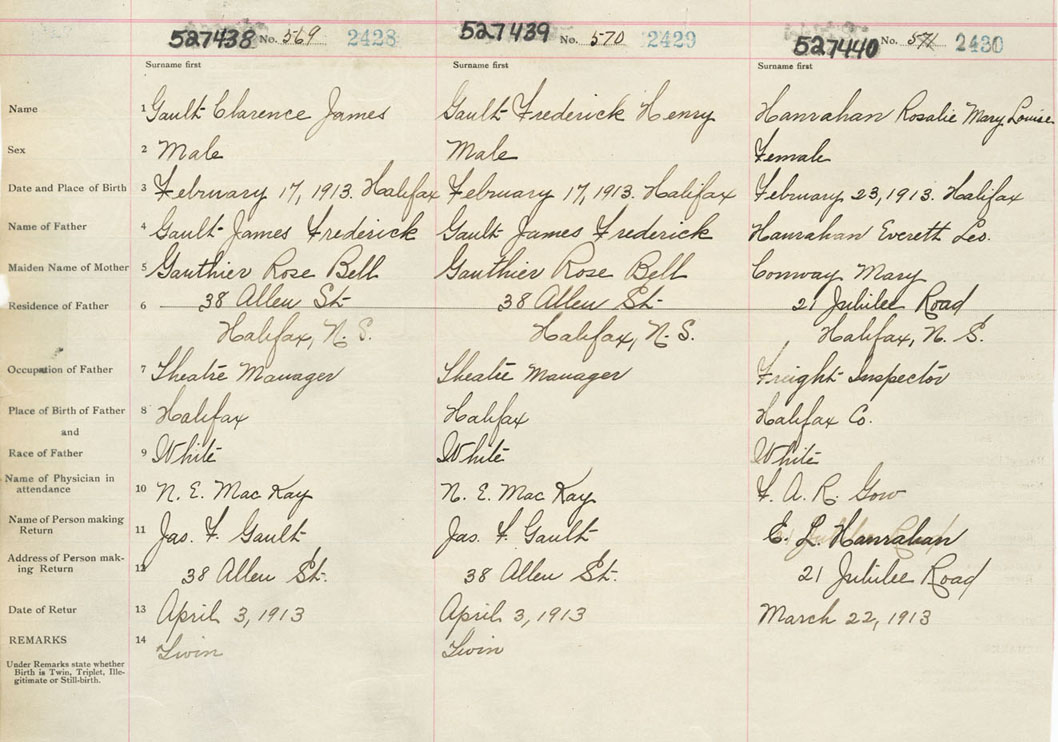 527438 No. 569 2428 527439 No. 570 2429 527440 No. 571 2430
Surname first Surname first Surname first
Name 1 Gault Clarence James Gault Frederick Henry Hanrahan Rosalie Mary Louise
Sex 2 Male Male Female
Date and Place of Birth 3 February 17, 1913. Halifax February 17, 1913. Halifax February 23, 1913. Halifax
Name of Father 4 Gault James Frederick Gault James Frederick Hanrahan Everett Leo.
Maiden Name of Mother 5 Gauthier Rose Bell Gauthier Rose Bell Conway Mary
Residence of Father 6 38 Allen St. 38 Allen St. 21 Jubilee Road
Halifax, N. S. Halifax, N. S. Halifax, N. S.
Occupation of Father 7 Theatre Manager Theatre Manager Freight Inspector
Place of Birth of Father 8 Halifax Halifax Halifax Co.
and
Race of Father 9 White White White
Name of Physician in
attendance 10 N. E. Mac Kay N. E. Mac Kay F. A. R. Gow
Name of Person making
Return 11 Jas. F. Gault Jas. F. Gault E. L. Hanrahan
Address of Person mak-
ing Return 12 38 Allen St. 38 Allen St. 21 Jubilee Road
Date of Retur 13 April 3, 1913 April 3, 1913 March 22, 1913
REMARKS 14 Twin Twin
Under Remarks state whether
Birth is Twin, Triplet, Ille-
gitimate or Still-birth.